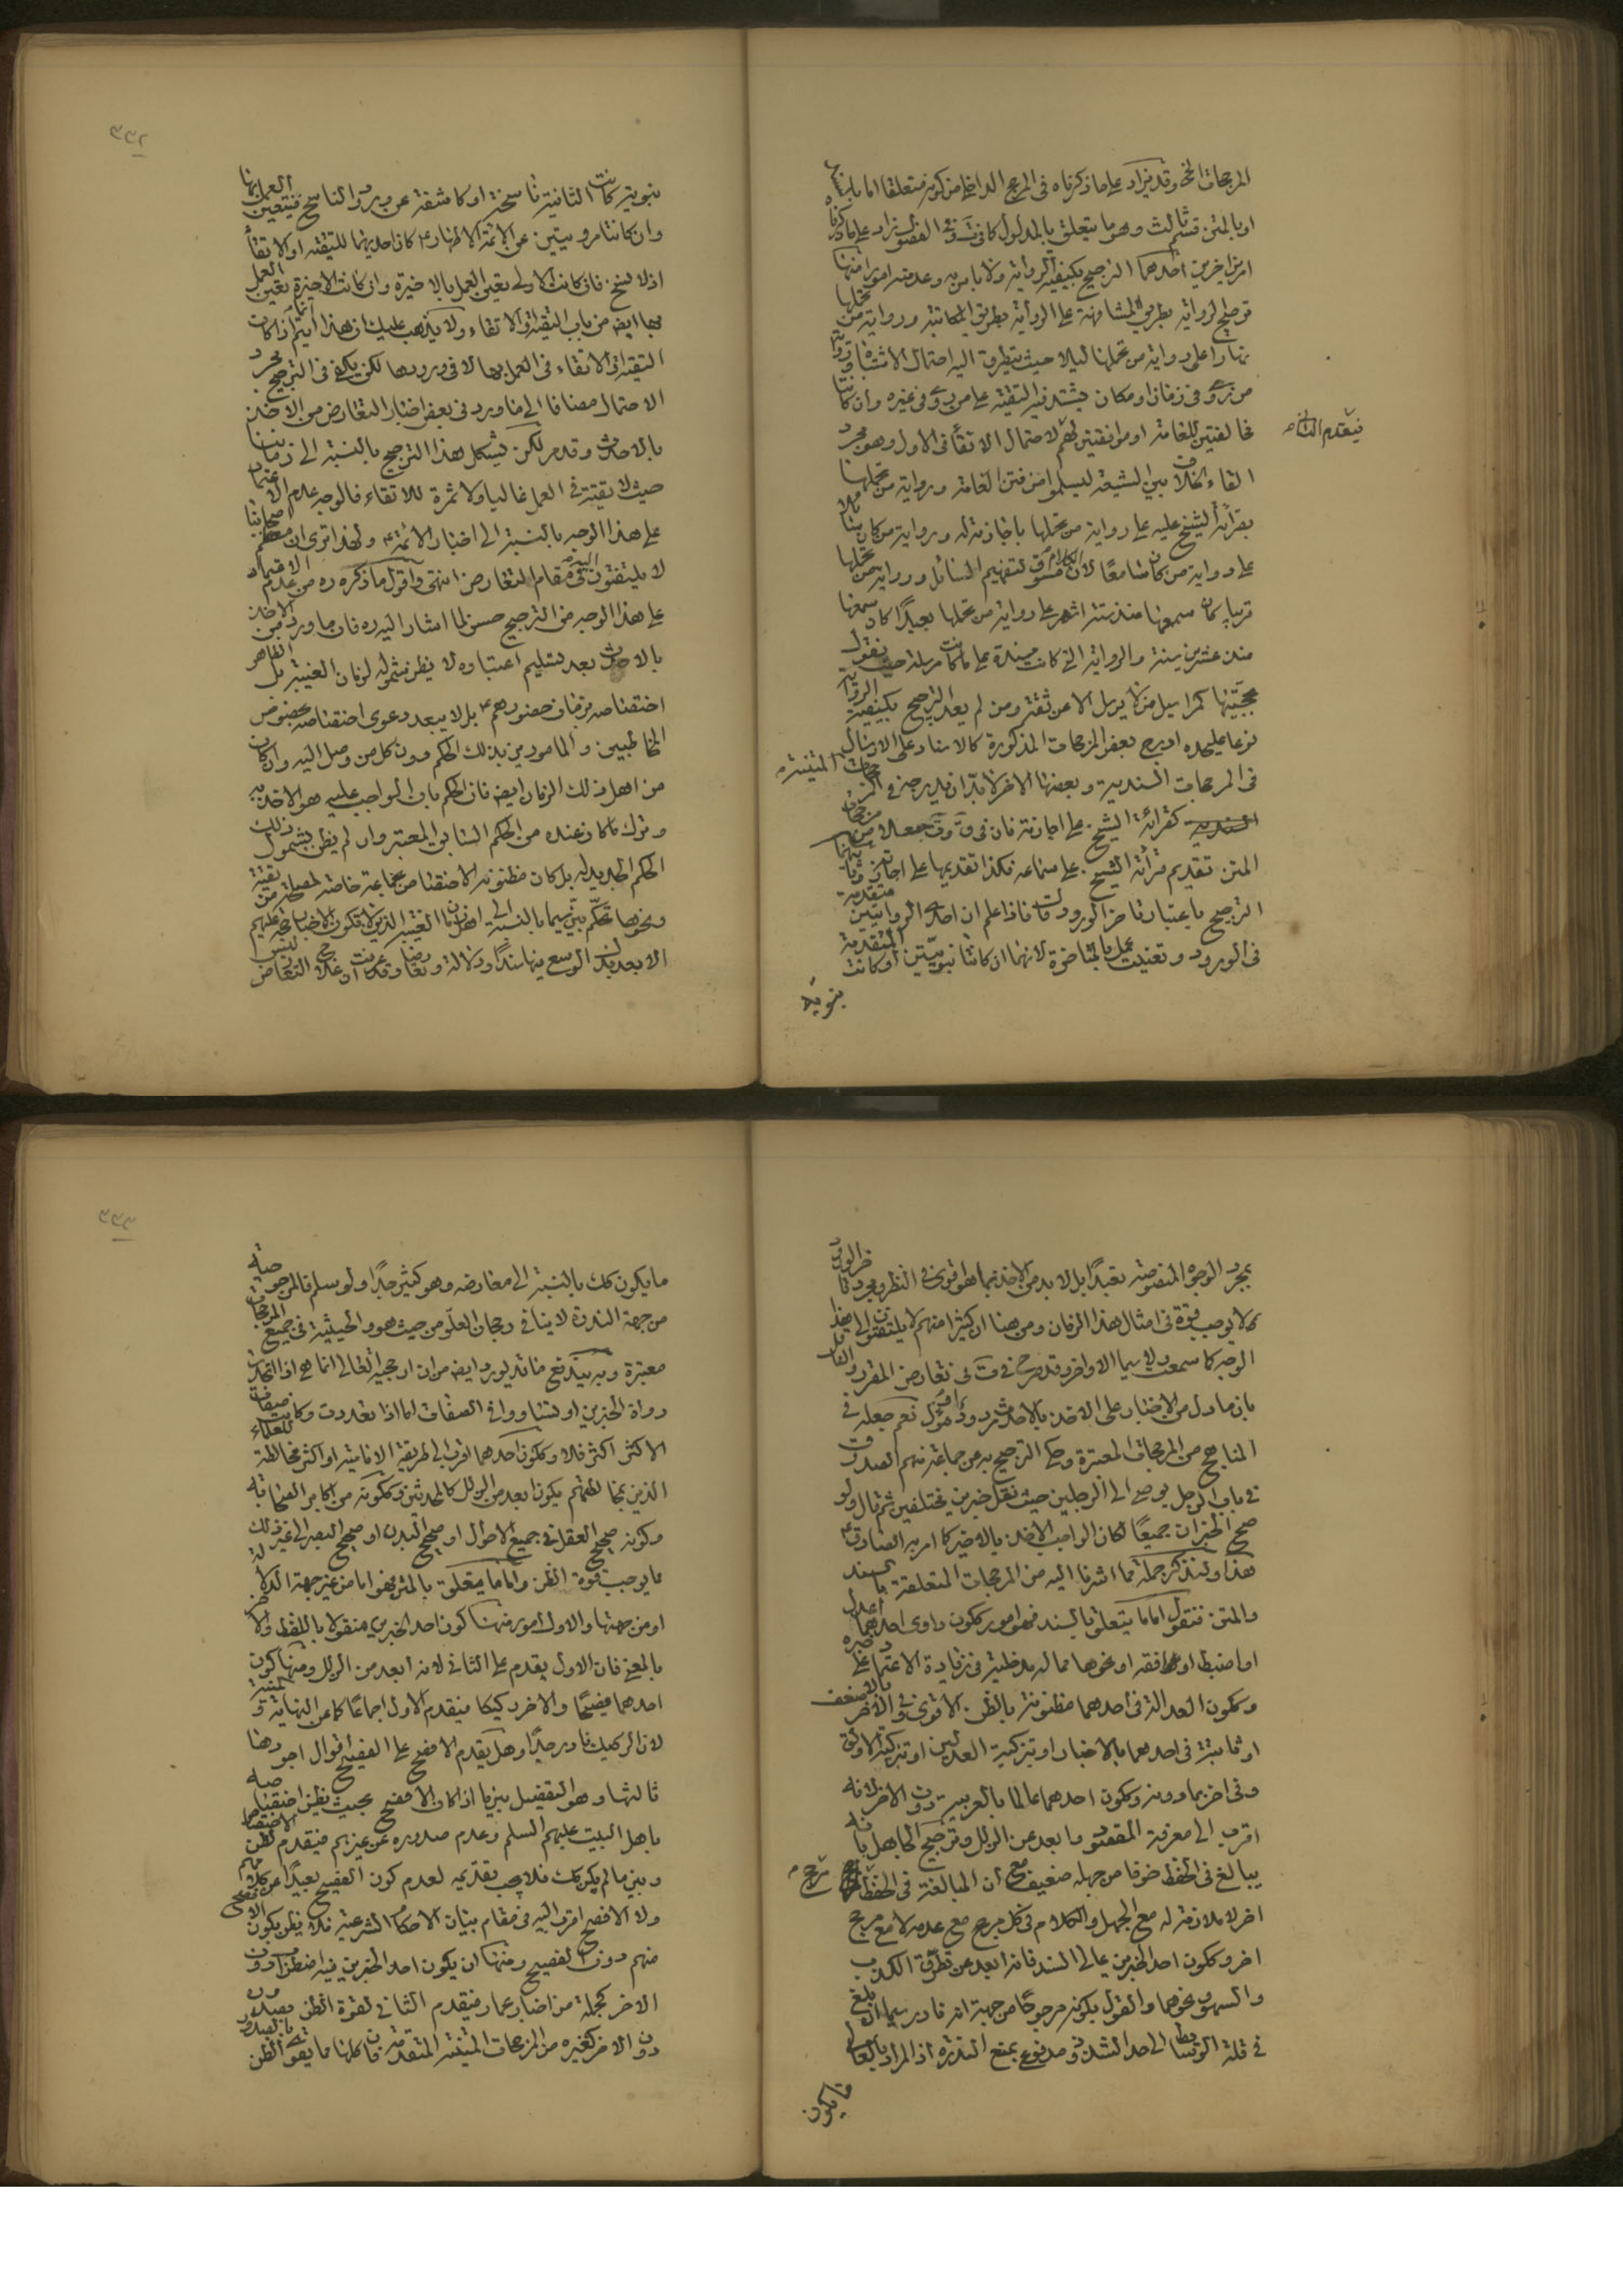 المرجحات الخ وقد يزاد على ما ذكرناه في المرجح الداخلي من كونه متعلقا اما بالسند
او بالمتن قسم ثالث وهو ما يتعلق بالمدلول كما في وفي الفصول زاد على ما ذكرنا
امرين اخرين احدهما الترجيح بكيفية الرواية ولا باس به وعد منه امورا منها
ترجيح الرواية بطريق المشافهة على الرواية بطريق المكاتبة ورواية من تحملها
نهارا على رواية من تحملها ليلا حيث يتطرق اليه احتمال الاشتباه ورواية
من روى في زمان او مكان يشتد فيه التقية على من روى في غيره وان كانتا
مخالفتين للعامة او موافقتين لهم لاحتمال الاتقاء في الاول وهو مجرد
فيقدم الثاني
القاء الخلاف بين الشيعة ليسلموا من فتن العامة ورواية من تحملها
بقرائة الشيخ عليه على رواية من تحملها باجازته له ورواية من كان
على رواية من كان سامعا لان الكلام مسوق لتفهيم السائل ورواية من تحملها
قريبا كان سمعها منذ ستة اشهر على رواية من تحملها بعيدا كان سمعها
منذ عشرين سنة والرواية التي كانت مسندة على ما كانت مرسلة حيث يقول
بحجيتها كمراسيل من لا يرسل الا عن ثقة ومن لم يعد الترجيح بكيفية الرواية
نوعا عليحده ادرج بعض المرجحات المذكورة كالاسناد على الارسال
في المرجحات السندية وبعضها الاخر لا بد ان يدرجه في المرجحات المتنية
كقرائة الشيخ على اجازته فان في جعلا من مرجحات
المتن تقديم قرائة الشيخ على سماعه فكذا تقديمها على اجازته وثانيهما
الترجيح باعتبار تاخر الورود فاذا علم ان احدى الروايتين متقدمة
في الورود وتعينت عمل بالمتاخرة لانهما ان كانتا نبويتين او كانت المتقدمة
نبوية
٣٣٢
نبوية كانت الثانية ناسخة او كاشفة عن ورود الناسخ فيتعين العمل بها
وان كانتا مرويتين عن الائمة الاطهار ع كان احديهما للتقية او الاتقاء
اذ لا نسخ فان كانت الاولى تعين العمل بالاخيرة وان كانت الاخيرة تعين العمل
بها ايضه من باب التقية او الاتقاء ولا يذهب عليك ان هذا انما يتم اذا كان
التقية او الاتقاء في العمل بها لا في ورودها لكن يكفي في الترجيح مجرد
الاحتمال مضافا الى ما ورد في بعض اخبار التعارض من الاخذ
بالاحدث وقد مر لكن يشكل هذا الترجيح بالنسبة الى زماننا
حيث لا تقية في العمل غالبا ولا ثمرة للاتقاء فالوجه عدم الاعتماد
على هذا الوجه بالنسبة الى اخبار الائمة ع ولهذا ترى ان معظم اصحابنا
لا يلتفتون اليه في مقام التعارض انتهى واقول ما ذكره ره من عدم الاعتماد
على هذا الوجه من الترجيح حسن لما اشار اليه ره فان ما ورد من الاخذ
بالاحدث بعد تسليم اعتباره لا يظهر شموله لزمان الغيبة بل الظاهر
اختصاصه بزمان حضورهم ع بل لا يبعد دعوى اختصاصه بخصوص
المخاطبين والمامورين بذلك الحكم دون كل من وصل اليه وان كان
من اهل ذلك الزمان ايضه فان الحكم بان الواجب عليه هو الاخذ به
وترك ما كان عنده من الحكم السابق المعتبر وان لم يظن بشمول ذلك
الحكم الجديد له بل كان مظنونه الاختصاص بجماعة خاصة لمصلحة من تقية
ونحوها تحكم بين سيما بالنسبة الى اهل زمان الغيبة الذين لا تكون الاخبار حجة عليهم
الا بعد بذل الوسع فيها سندا ودلالة وتعارضا وقد عرفت ان علاج التعارض ليس
بمجرد الوجوه المنصوصة تعبدا بل لا بد من الاخذ بما هو اقوى في النظر ومجرد تاخر الورود
لا يوجب قوة في امثال هذا الزمان ومن هنا ان كثيرا منهم لا يلتفتون الى هذا
الوجه كما سمعت ولا سيما الاواخر وقد صرح في في تعارض المقرر والناقل
بان ما دل من الاخبار على الاخذ بالاحدث مردود مؤول نعم جعله في
المناهج من المرجحات المعتبرة وحكى الترجيح به عن جماعة منهم الصدوق
في باب الرجل يوصي الى الرجلين حيث نقل خبرين مختلفين ثم قال ولو
صح الخبران جميعا لكان الواجب الاخذ بالاخير كما امر به الصادق ع
هذا ولنذكر جملة مما اشرنا اليه من المرجحات المتعلقة بالسند
والمتن فنقول اما ما يتعلق بالسند فهو امور ككون راوى احدهما اعدل
او اضبط او افقه او نحوها مما له مدخلية في زيادة الاعتماد على خبره
وككون العدالة في احدهما مظنونة بالظن الاقوى وفي الاخر بالاضعف
او ثابتة في احدهما بالاختبار او تزكية العدلين او تزكية الاوثق
وفي اخر بما دونه وككون احدهما عالما بالعربية دون الاخر لانه
اقرب الى معرفة المقصود وابعد عن الزلل وترجيح الجاهل بانه
يبالغ في الحفظ خوفا من جهله ضعيف مع ان المبالغة في الحفظ مرجح
اخر لا ملازمة له مع الجهل والكلام في كل مرجح مع عدمه لا مع مرجح
اخر وككون احد الخبرين عالى السند فانه ابعد عن تطرق الكذب
والسهو ونحوهما والقول بكونه مرجوحا من جهة انه نادر سيما ان بلغ
في قلة الوسائط الى حد الشذوذ مدفوع بمنع الندرة اذ المراد بالعالى
ما يكون
٣٣٣
ما يكون كك بالنسبة الى معارضه وهو كثير جدا ولو سلم فالمرجوحية
من جهة الندرة لا ينافي رجحان العلو من حيث هو والحيثية في جميع المرجحات
معتبرة وبه يندفع ما قد يورد ايضه من ان ارجحية العالى انما هي اذا اتحدت
رواة الخبرين او تساووا في الصفات اما اذا تعددت وكانت صفات
الاكثر اكثر فلا وككون احدهما اقرب الى طريقة الامامية او اكثر مخالطة للعلماء
الذين بمخالطتهم يكون ابعد من الزلل كالمحدثين وككونه من اكابر الصحابة
وكونه صحيح العقل في جميع الاحوال او صحيح البدن او صحيح البصر الى غير ذلك
مما يوجب قوة الظن واما ما يتعلق بالمتن فهو اما من غير جهة الدلالة
او من جهتها والاول امور منها كون احد الخبرين منقولا باللفظ والاخر
بالمعنى فان الاول يقدم على الثاني لانه ابعد من الزلل ومنها كون
احدهما فصيحا والاخر ركيكا فيقدم الاول اجماعا كما عن النهاية والمنية
لان الركيك نادر جدا وهل يقدم الافصح على الفصيح اقوال اجودها
ثالثها وهو التفصيل بين ما اذا كان الافصح بحيث يظن اختصاصه
باهل البيت عليهم السلم وعدم صدوره عن غيرهم فيقدم لظن الاختصاص
وبين ما لم يكن كك فلا يجب تقديمه لعدم كون الفصيح بعيدا عن كلامهم
ولا الافصح اقرب اليه في مقام بيان الاحكام الشرعية فلا يظن بكون الافصح
منهم دون الفصيح ومنها ان يكون احد الخبرين فيه اضطراب دون
الاخر كجملة من اخبار عمار فيقدم الثاني لقوة الظن بصدوره
دون الاخر كغيره من المرجحات المتنية المتقدمة فان كلها مما يقوى الظن بالصدور